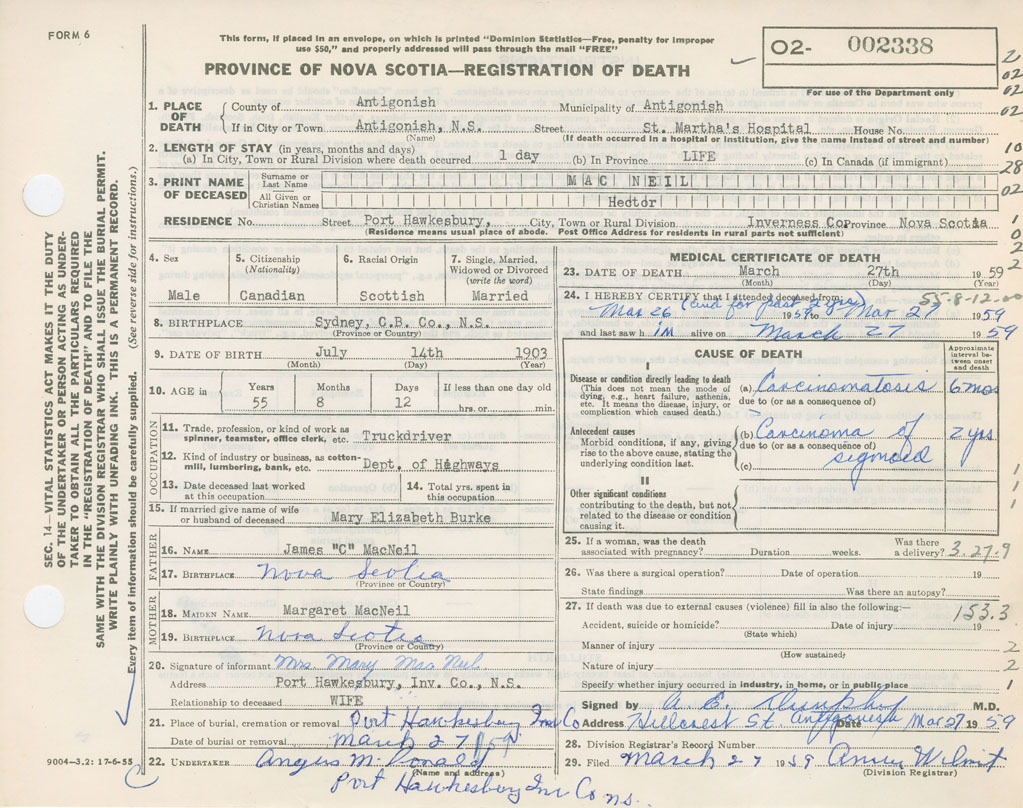 FORM 6
This form, if placed in an envelope, on which is printed "Dominion Statistics—Free, penalty for improper
use $50," and properly addressed will pass through the mail "FREE"
PROVINCE OF NOVA SCOTIA—REGISTRATION OF DEATH
O2- 002338
For use of the Department only
2
02
02
02
10
28
02
1
0
2
2
SEC. 14—VITAL STATISTICS ACT MAKES IT THE DUTY
OF THE UNDERTAKER OR PERSON ACTING AS UNDER-
TAKER TO OBTAIN ALL THE PARTICULARS REQUIRED
IN THE "REGISTRATION OF DEATH" AND TO FILE THE
SAME WITH THE DIVISION REGISTRAR WHO SHALL ISSUE THE BURIAL PERMIT.
WRITE PLAINLY WITH UNFADING INK. THIS IS A PERMANENT RECORD.
Every item of information should be carefully supplied. (See reverse side for instructions.)
1. PLACE OF DEATH
County of Antigonish Municipality of Antigonish
If in City or Town Antigonish, N.S. Street St. Martha's Hospital House No.
(Name) (If death occurred in a hospital or institution, give the name instead of street and number)
2. LENGTH OF STAY (in years, months and days)
(a) In City, Town or Rural Division where death occurred 1 day (b) In Province LIFE (c) In Canada (if immigrant)
3. PRINT NAME OF DECEASED
Surname or Last Name MAC NEIL
All Given or Christian Names Hector
RESIDENCE No. Street Port Hawkesbury, City, Town or Rural Division Inverness Co Province Nova Scotia
(Residence means usual place of abode. Post Office Address for residents in rural parts not sufficient)
4. Sex 5. Citizenship (Nationality) 6. Racial Origin 7. Single, Married, Widowed or Divorced (write the word)
Male Canadian Scottish Married
8. BIRTHPLACE Sydney, C.B. Co., N.S.
(Province or Country)
9. DATE OF BIRTH July 14th 1903
(Month) (Day) (Year)
10. AGE in Years Months Days If less than one day old
55 8 12 hrs. or min.
OCCUPATION
11. Trade, profession, or kind of work as
spinner, teamster, office clerk, etc. Truckdriver
12. Kind of industry or business, as cotton-
mill, lumbering, bank, etc. Dept. of Highways
13. Date deceased last worked at this occupation 14. Total yrs. spent in this occupation
15. If married give name of wife
or husband of deceased Mary Elizabeth Burke
FATHER
16. NAME James "C" MacNeil
17. BIRTHPLACE Nova Scotia
(Province or Country)
MOTHER
18. MAIDEN NAME Margaret MacNeil
19. BIRTHPLACE Nova Scotia
(Province or Country)
20. Signature of informant Mrs. Mary Mac Neil
Address Port Hawkesbury, Inv. Co., N.S.
Relationship to deceased WIFE
21. Place of burial, cremation or removal Port Hawkesbury Inv Co
Date of burial or removal March 27/59
22. UNDERTAKER Angus McDonald
(Name and address)
Port Hawkesbury Inv Co ns.
9004—3.2: 17-6-55
MEDICAL CERTIFICATE OF DEATH
23. DATE OF DEATH March 27th 1959
(Month) (Day) (Year)
55-8-12.00
24. I HEREBY CERTIFY that I attended deceased from
Mar 26 (and for past 2 yrs) 1959 to Mar 27 1959
and last saw him alive on March 27 1959
CAUSE OF DEATH
Approximate interval between onset and death
I
Disease or condition directly leading to death
(This does not mean the mode of
dying, e.g., heart failure, asthenia,
etc. It means the disease, injury, or
complication which caused death.)
(a) Carcinomatosis 6 mos
due to (or as a consequence of)
Antecedent causes
Morbid conditions, if any, giving
rise to the above cause, stating the
underlying condition last.
(b) Carcinoma of 2 yrs
due to (or as a consequence of)
sigmoid
(c)
II
Other significant conditions
contributing to the death, but not
related to the disease or condition
causing it.
1
1
1
25. If a woman, was the death
associated with pregnancy? Duration weeks. Was there a delivery? 3.27.9
26. Was there a surgical operation? Date of operation 19
State findings Was there an autopsy?
27. If death was due to external causes (violence) fill in also the following:— 153.3
Accident, suicide or homicide? Date of injury 19
(State which)
Manner of injury 2
(How sustained)
Nature of injury 2
Specify whether injury occurred in industry, in home, or in public place 1
Signed by A. E. Dunphy M.D.
Address Hillcrest St. Antigonish Date Mar 27 1959
28. Division Registrar's Record Number
29. Filed March 27 1959
(Division Registrar)